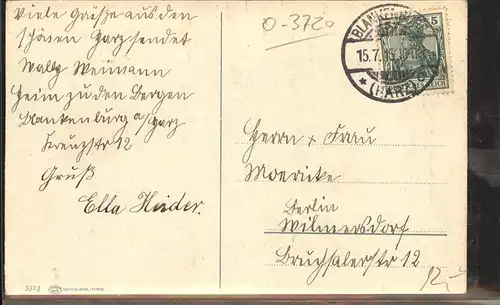 Viele Grüße aus den
schönen Harz sendet
Wally Weimann
Heim zu den Bergen
Blankenburg a/Harz
Kreuzstr 12
Gruß
Ella Heider.
0-3720
BLANKENBURG
15.7.
* (HARZ)
5
Herrn + Frau
Moericke
Berlin
Wilmersdorf
Bruchsalerstr 12
12,-
3313